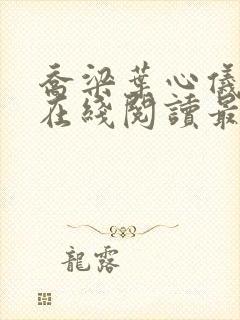 喬梁葉心儀
在綫閱讀最
龍露